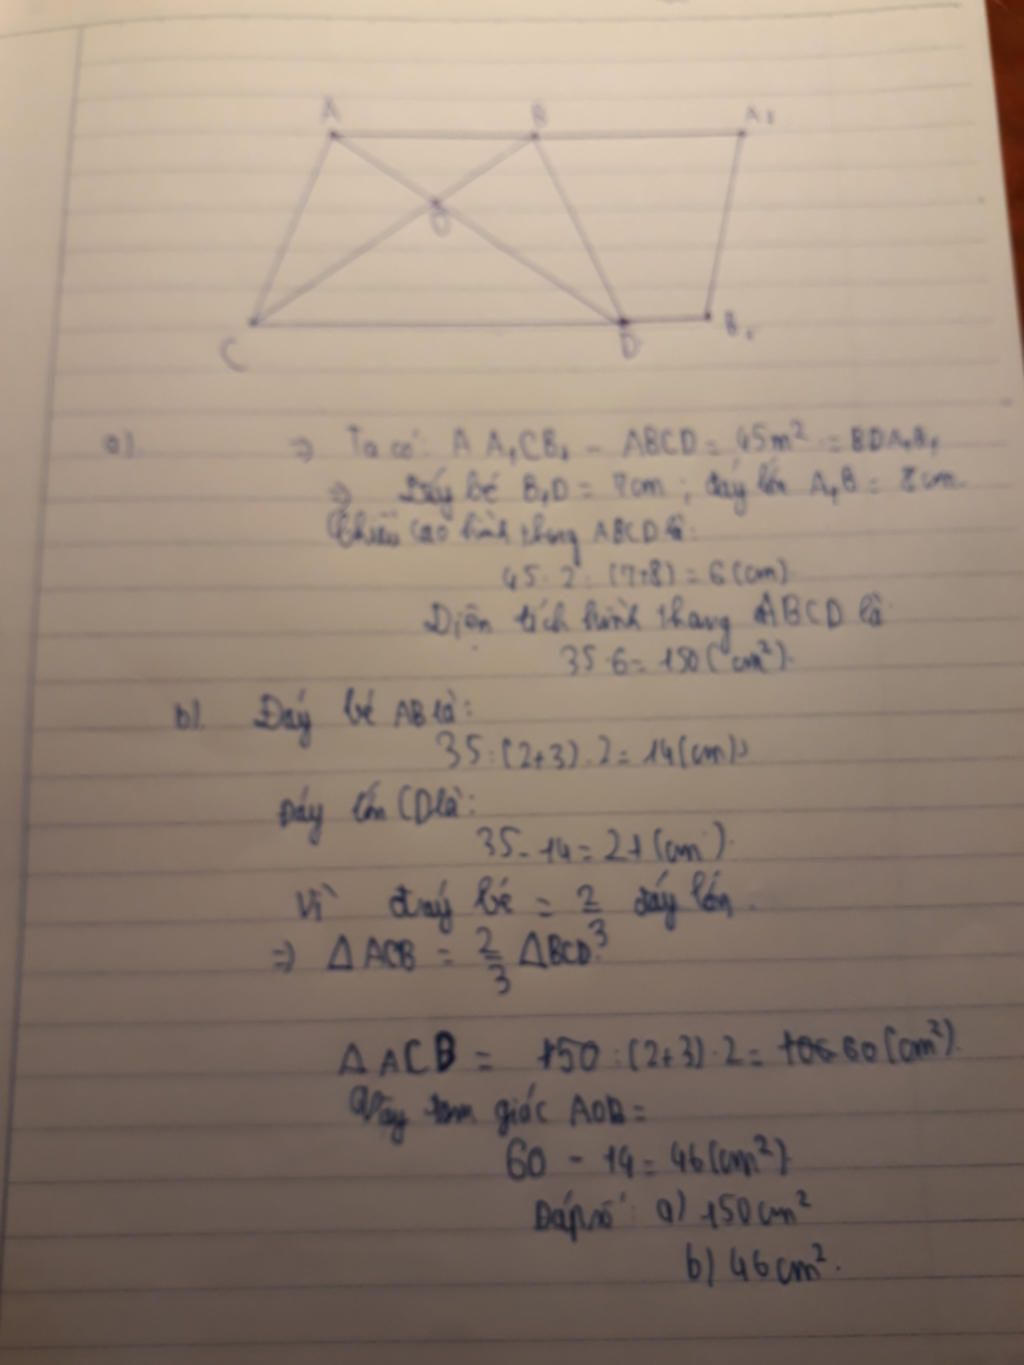 A B A₁
O
C D B₁
a) => Ta có: A A₁CB₁ - ABCD = 45m² = BDA₁B₁
=> Đáy bé B₁D = 7cm ; đáy lớn A₁B = 8cm
Chiều cao hình thang ABCD là:
45 . 2 : (7+8) = 6 (cm)
Diện tích hình thang ABCD là
35 . 6 = 150 (cm²).
b) Đáy bé AB là:
35 : (2+3) . 2 = 14 (cm)
Đáy lớn CD là:
35 - 14 = 21 (cm).
Vì đáy bé = 2/3 đáy lớn.
=> Δ ACB = 2/3 Δ BCD.
Δ ACB = 150 : (2+3) . 2 = 60 (cm²).
Vậy tam giác AOB =
60 - 14 = 46 (cm²)
Đáp số: a) 150cm²
b) 46cm².